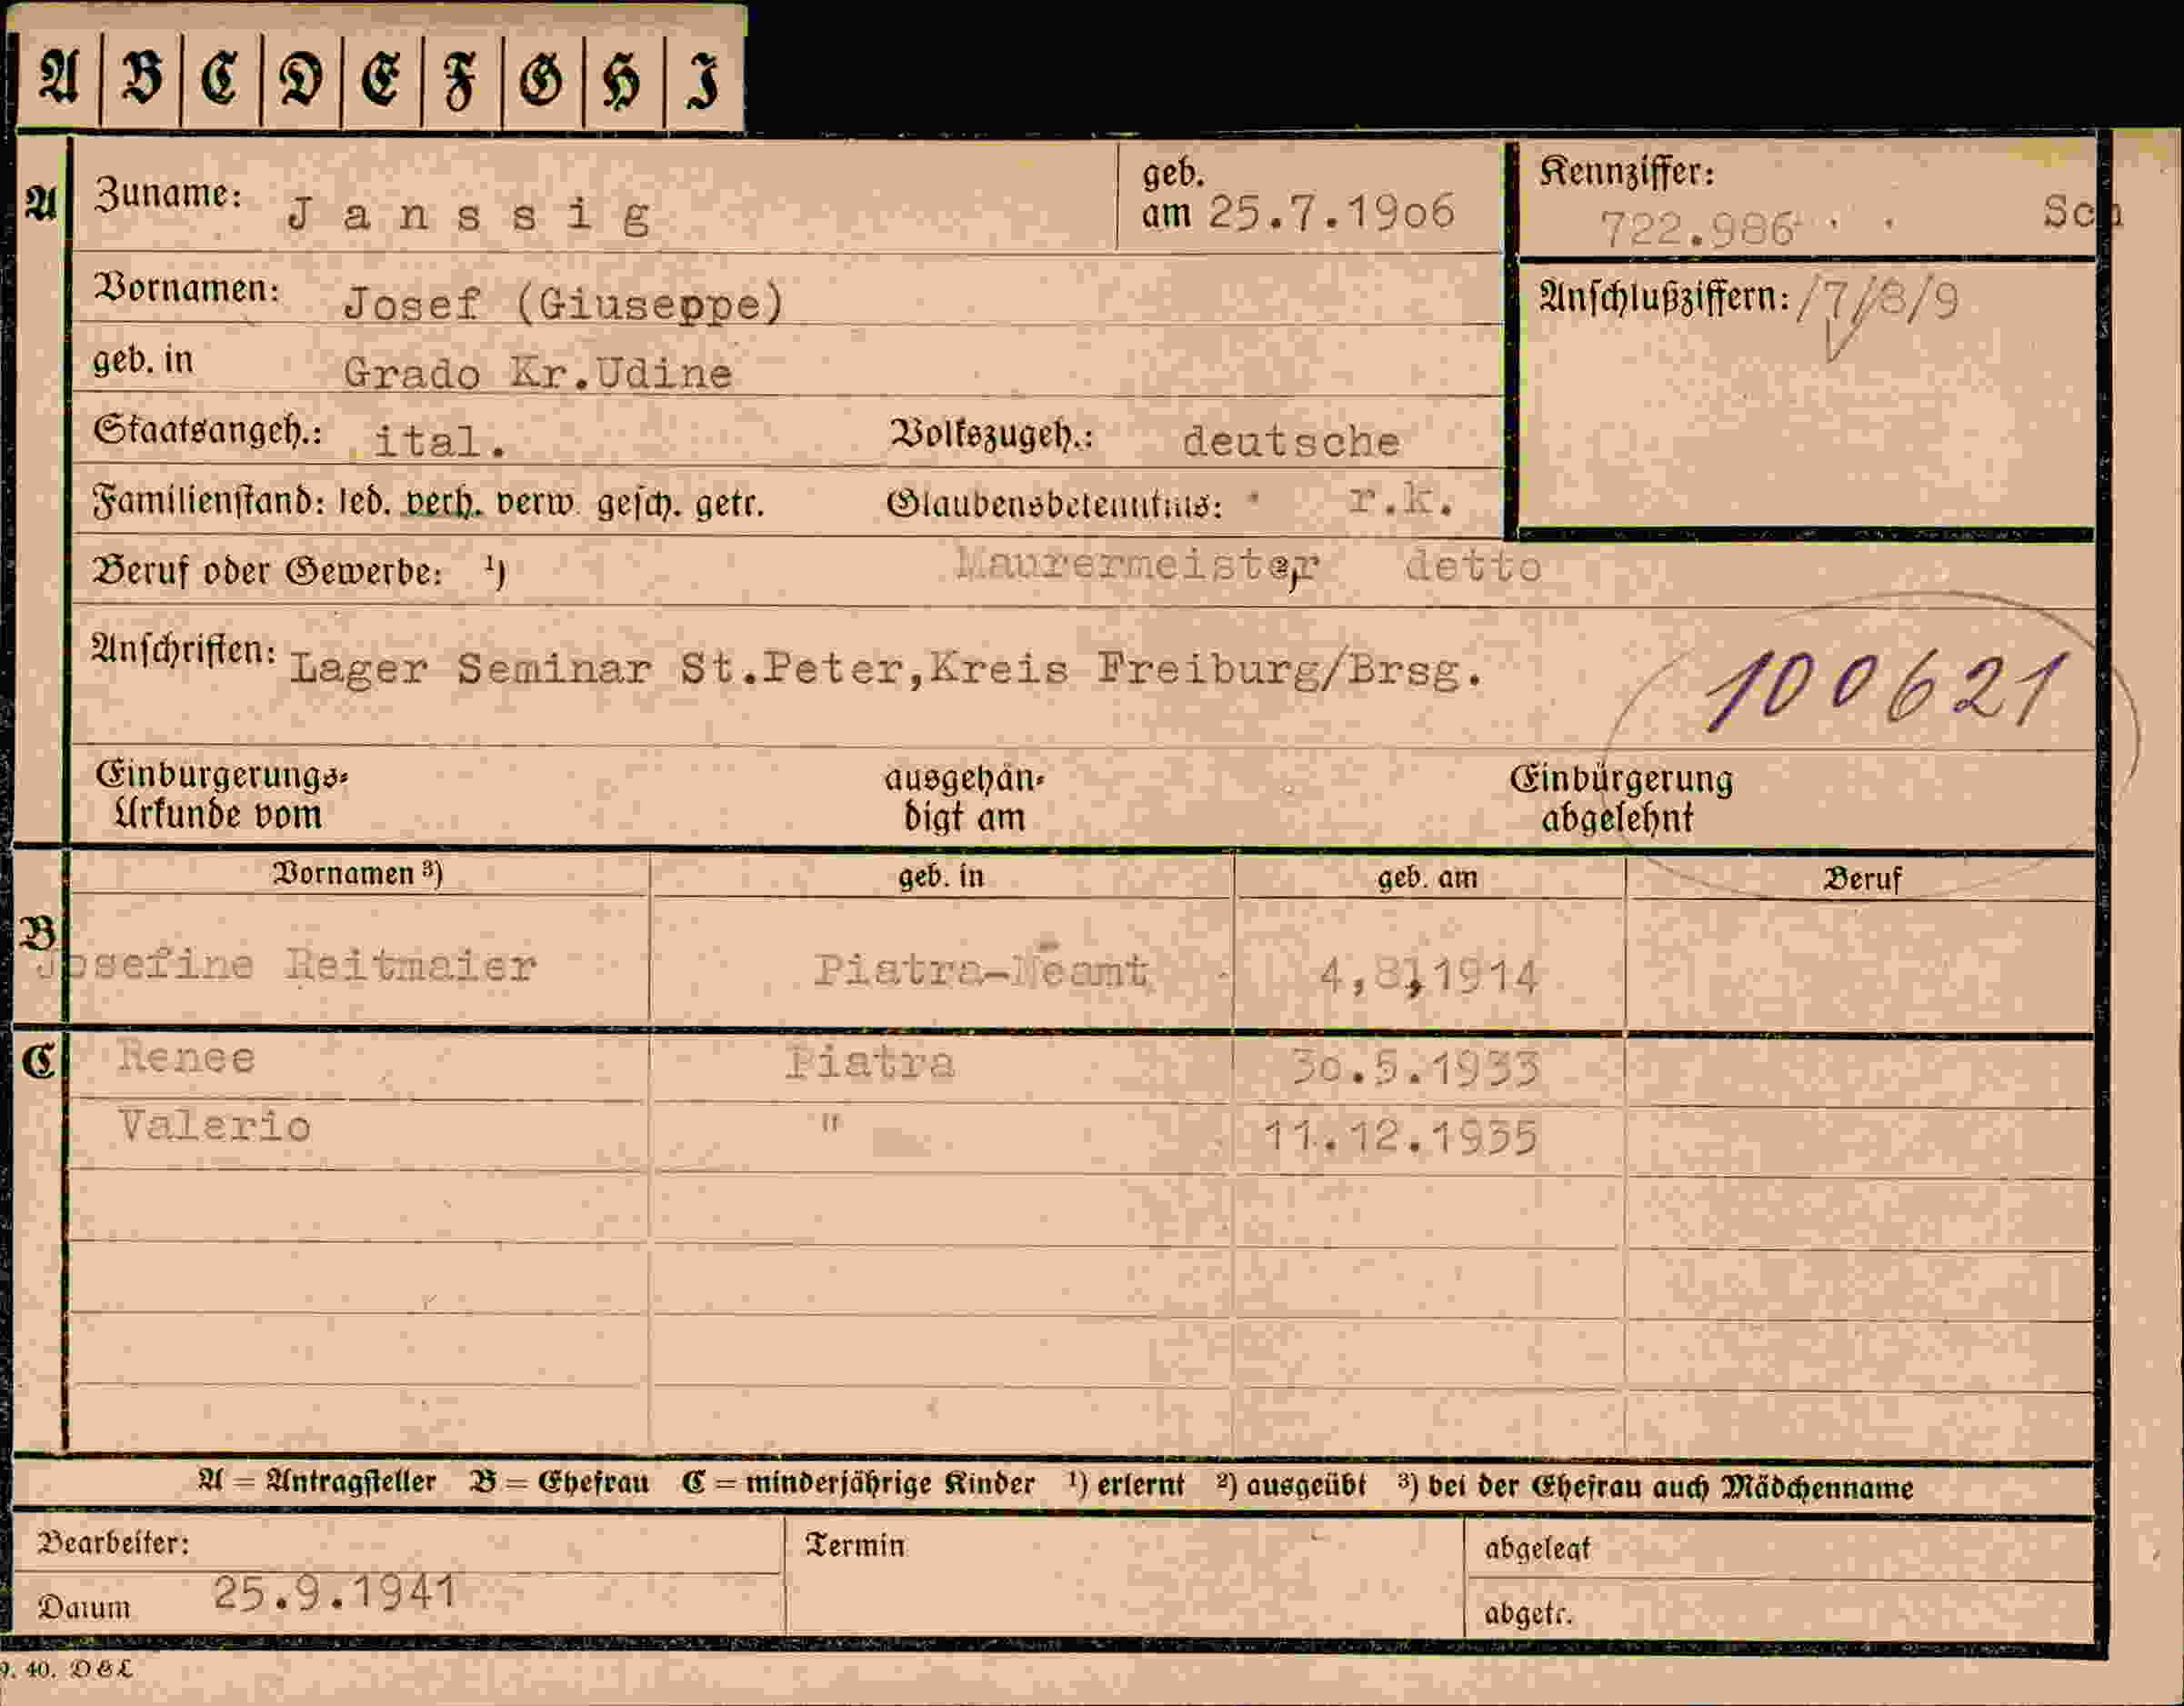 A B C D E F G H I
A Zuname: Janssig geb. am 25.7.1906 Kennziffer: 722.986 Sch
Vornamen: Josef (Giuseppe) Anschlußziffern: /7/8/9
geb. in Grado Kr.Udine
Staatsangeh.: ital. Volkszugeh.: deutsche
Familienstand: led. verh. verw. gesch. getr. Glaubensbekenntnis: r.k.
Beruf oder Gewerbe: ¹) Maurermeister detto
Anschriften: Lager Seminar St.Peter,Kreis Freiburg/Brsg. 100621
Einbürgerungs= ausgehän= Einbürgerung
Urkunde vom digt am abgelehnt
Vornamen ³) geb. in geb. am Beruf
B Josefine Reitmaier Piatra-Neamt 4,8,1914
C Renee Piatra 30.5.1933
Valerio " 11.12.1935
A = Antragsteller B = Ehefrau C = minderjährige Kinder ¹) erlernt ²) ausgeübt ³) bei der Ehefrau auch Mädchenname
Bearbeiter: Termin abgelegt
Datum 25.9.1941 abgetr.
9. 40. D&L